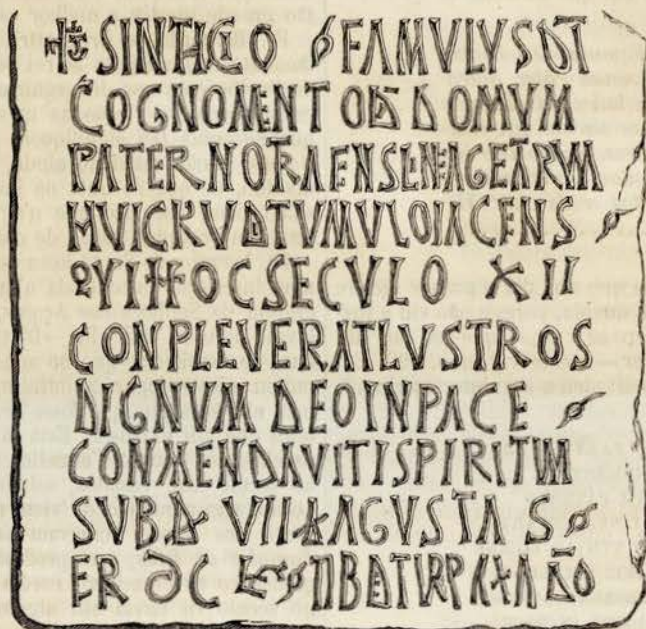 SINTICIO FAMVLVS DI
COGNOMENTO DOMVM
PATERNO TRAENS LINEA GETARVM
HVIC TVMVLO IACENS
QVI HOC SECVLO XII
CONPLEVERAT LVSTROS
DIGNVM DEO IN PACE
CONMENDAVIT ISPIRITVM
SVB D VII AGVSTAS
ER DC